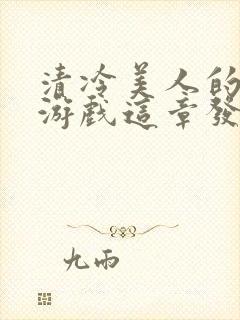 清冷美人的
游戲這章發
九雨